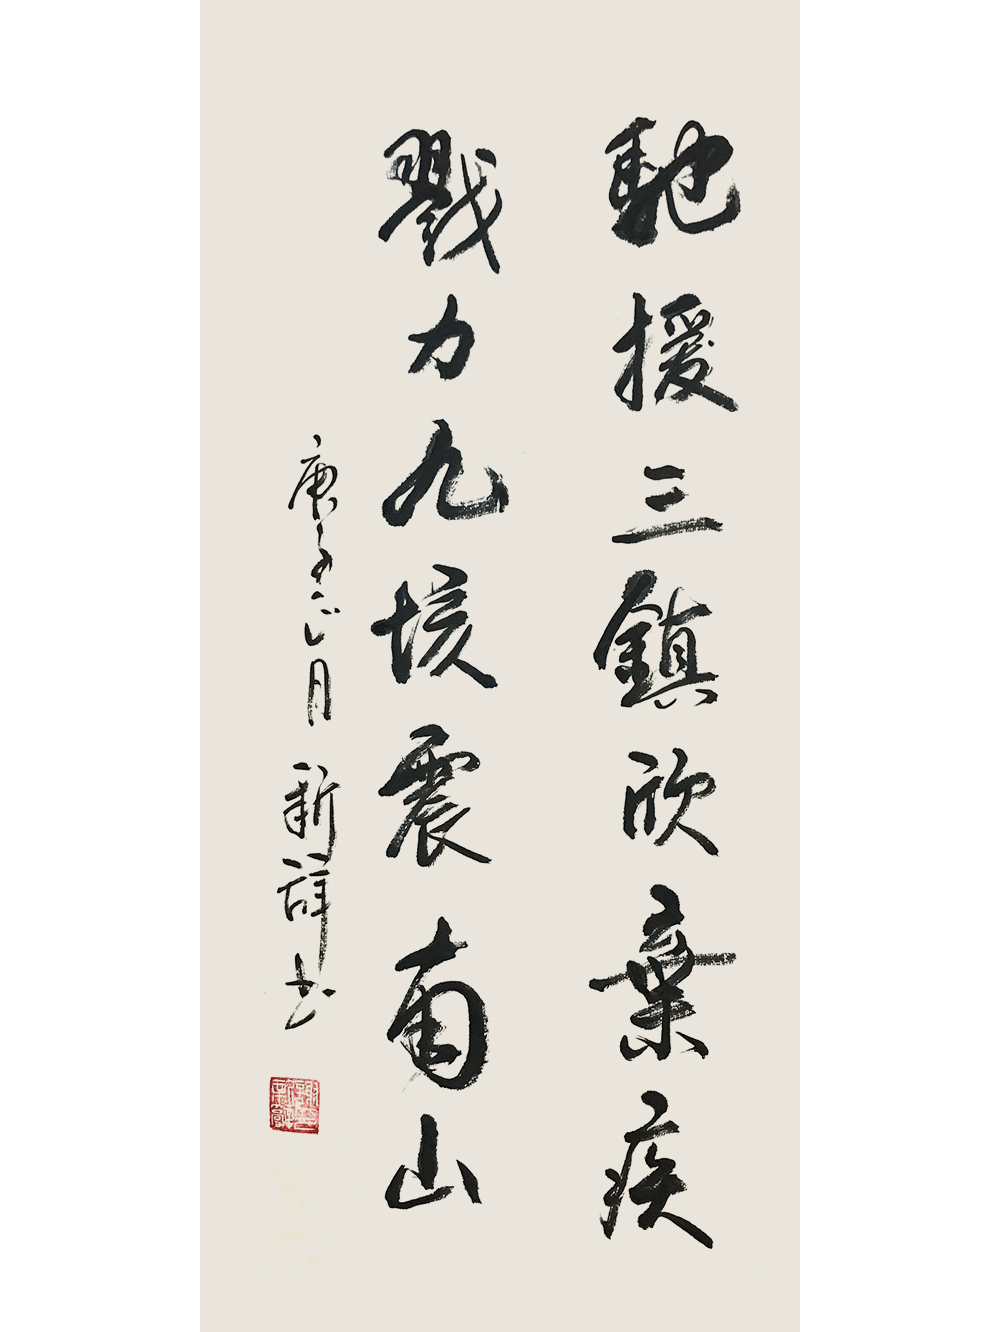 馳援三鎮欣棄疾
戮力九垓震南山
庚子正月 新祥书